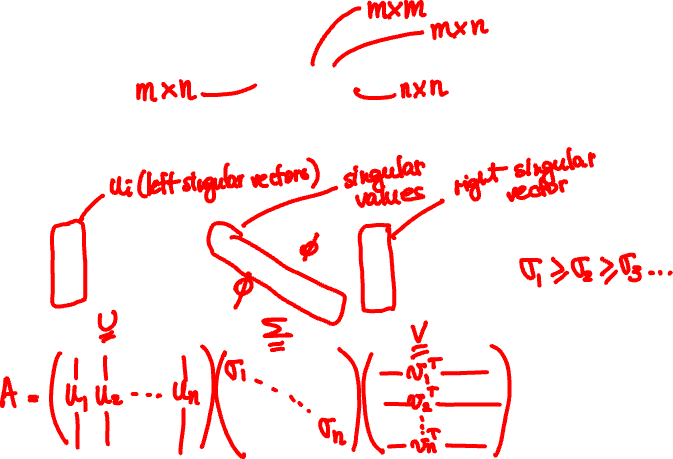 m×m
m×n
m×n
n×n
uᵢ (left singular vectors)
singular values
right singular vector
∅
∅
σ₁ ≥ σ₂ ≥ σ₃ ...
U
Σ
V
A = ( u₁ u₂ ... uₙ ) ( σ₁ ... σₙ ) ( v₁ᵀ
v₂ᵀ
⋮
vₙᵀ )